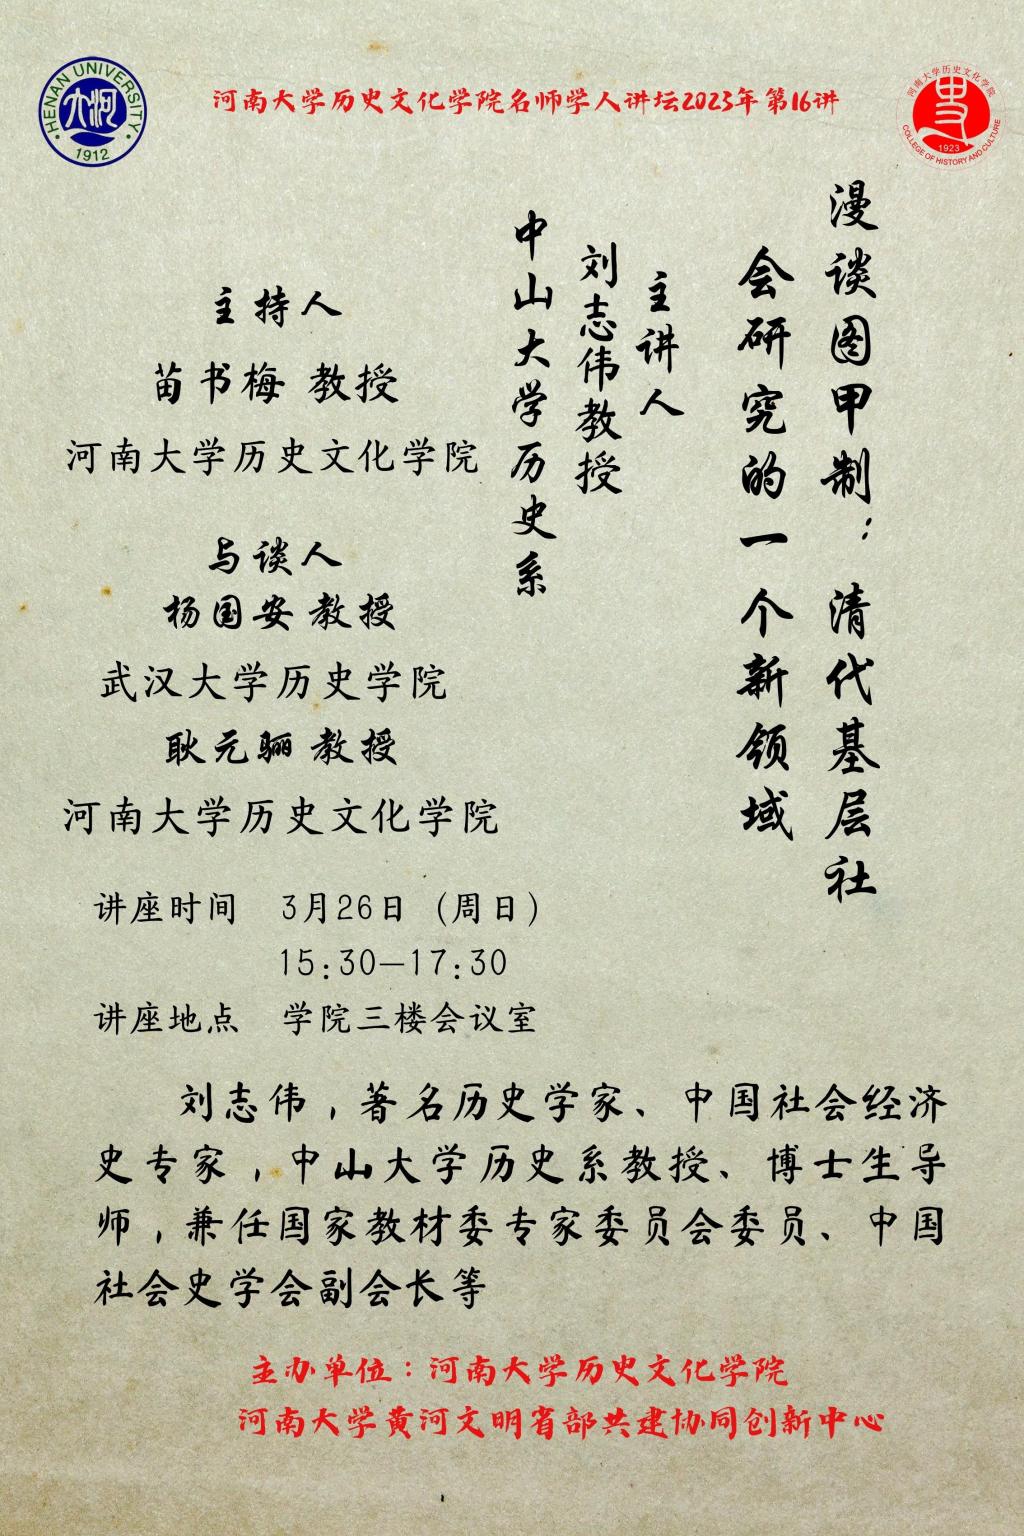 河南大学历史文化学院名师学人讲坛2023年第16讲
HENAN UNIVERSITY
大河
1912
河南大学历史文化学院
史
1923
COLLEGE OF HISTORY AND CULTURE
漫谈图甲制：清代基层社
会研究的一个新领域
主讲人
刘志伟教授
中山大学历史系
主持人
苗书梅 教授
河南大学历史文化学院
与谈人
杨国安 教授
武汉大学历史学院
耿元骊 教授
河南大学历史文化学院
讲座时间 3月26日（周日）
15:30—17:30
讲座地点 学院三楼会议室
刘志伟，著名历史学家、中国社会经济
史专家，中山大学历史系教授、博士生导
师，兼任国家教材委专家委员会委员、中国
社会史学会副会长等
主办单位：河南大学历史文化学院
河南大学黄河文明省部共建协同创新中心